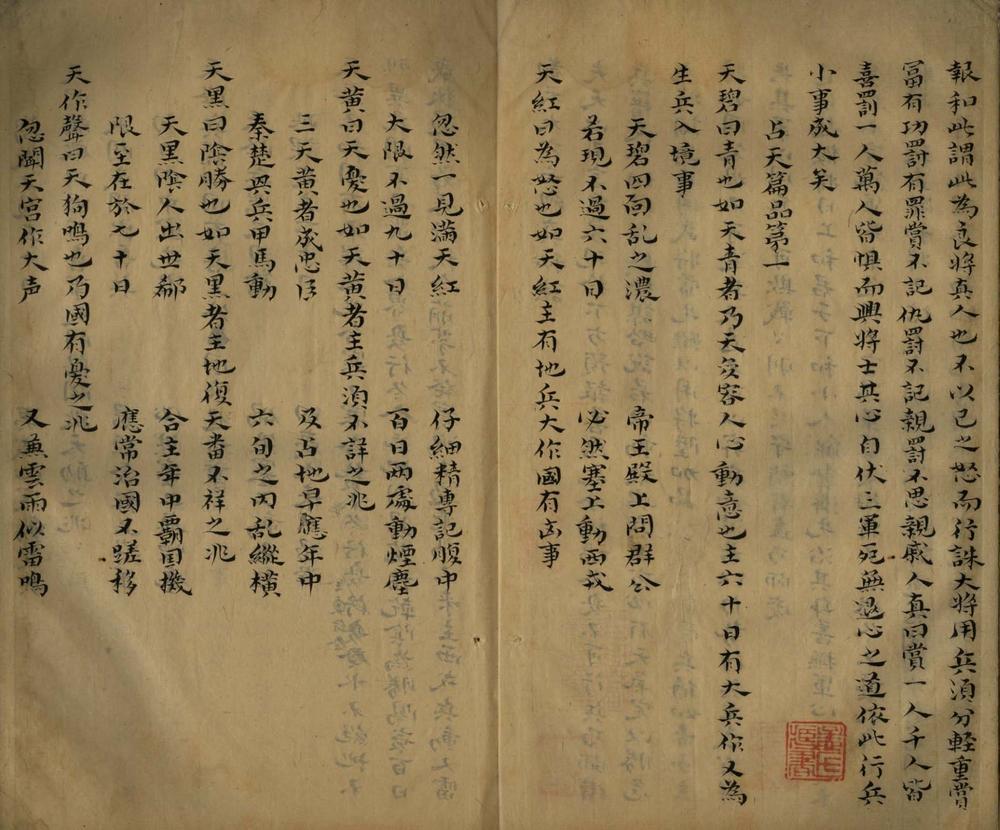 報和此謂此為良將真人也不以已之怒而行誅大將用兵須分輕重賞
冨有功罰有罪賞不記仇罰不記親罰不思親戚人真曰賞一人千人皆
喜罰一人萬人皆惧而興將士其心自伏三軍死無退心之道依此行兵
小事成大矣
占天篇品第一
天碧曰青也如天青者乃天変容人心動意也主六十日有大兵作又為
生兵入境事
天碧四面乱之濃 帝王殿上問群公
若現不過六十日 必然塞上動西戎
天紅曰為怒也如天紅主有地兵大作國有凶事
忽然一見滿天紅 仔細精專記腹中
大限不過九十日 百日两處動煙塵
天黄曰天憂也如天黄者主兵須不詳之兆
三天黄者成忠臣 及占地早應年中
秦楚興兵甲馬動 六旬之内乱縱橫
天黑曰陰勝也如天黑者主地復天畨不祥之兆
天黑陰人出世鄰 合主年中覇国機
限至在於七十日 應常治國不蹉移
天作聲曰天狗鳴也乃國有憂之兆
忽聞天宮作大声 又兼雲雨似雷鳴